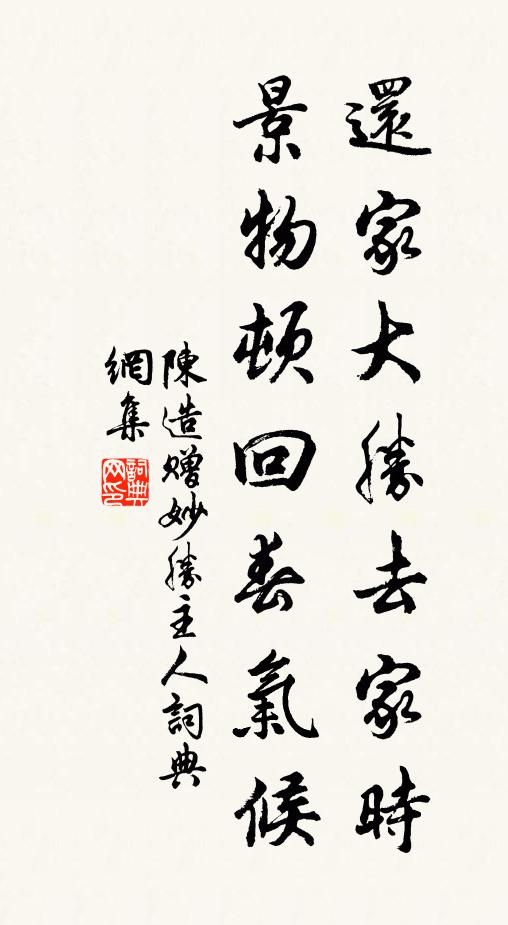 還家大勝去家時
景物頓回春氣候
陳造贈妙勝主人詞典
網集
詞典網印